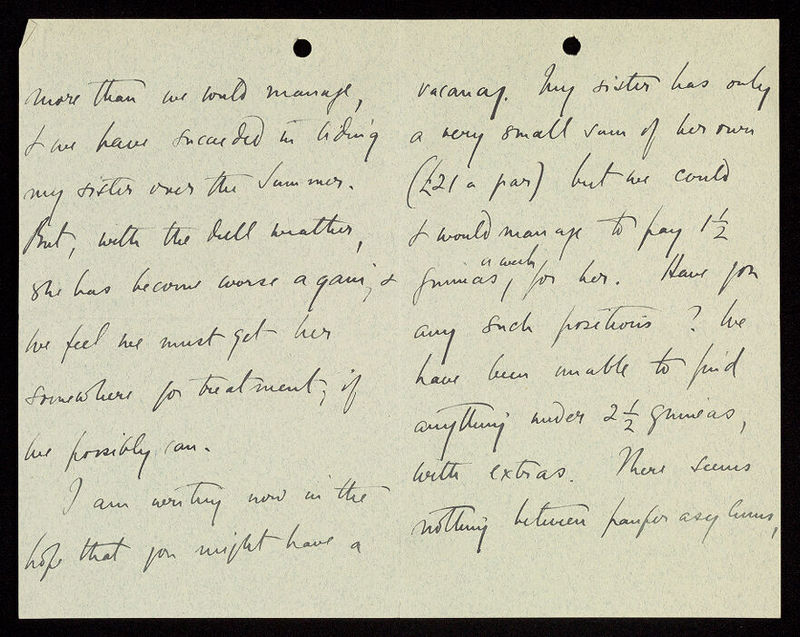 more than we could manage,
& we have succeeded in tiding
my sister over the Summer.
But, with the dull weather,
she has become worse again, &
we feel we must get her
somewhere for treatment, if
we possibly can.
I am writing now in the
hope that you might have a
vacancy. My sister has only
a very small sum of her own
(£21 a year) but we could
& would manage to pay 1½
guineas a week, for her. Have you
any such positions? We
have been unable to find
anything under 2½ guineas,
with extras. There seems
nothing between pauper asylums,